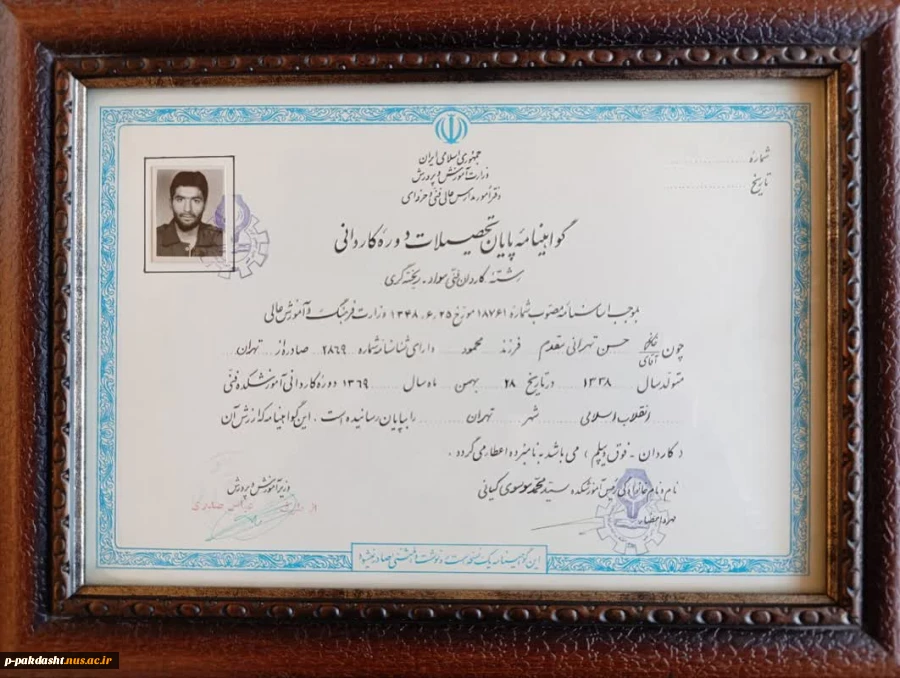 جمهوری اسلامی ایران
وزارت آموزش و پرورش
دفتر امور مدارس عالی فنی و حرفه‌ای
شماره
تاریخ
گواهینامهٔ پایان تحصیلات دورهٔ کاردانی
رشته: کاردان فنی مواد - ریخته گری
بموجب اساسنامهٔ مصوب شمارهٔ ۱۸۷۶۱ مورخ ۱۳۴۸.۶.۲۵ وزارت فرهنگ و آموزش عالی
چون خانم آقای حسن تهرانی مقدم فرزند محمود دارای شناسنامهٔ شماره ۲۸۶۹ صادره از تهران
متولد سال ۱۳۳۸ در تاریخ ۲۸ بهمن ماه سال ۱۳۶۹ دورهٔ کاردانی آموزشکدهٔ فنی
انقلاب اسلامی شهر تهران را بپایان رسانیده است . این گواهینامه که ارزش آن
( کاردان - فوق دیپلم ) می باشد به نامبرده اعطا می گردد .
نام و نام خانوادگی رئیس آموزشکده سید محمد موسوی کیانی
مهر و امضاء
وزیر آموزش و پرورش
از طرف عباس صدری
این گواهینامه یک نسخه است و رونوشت یا المثنی صادر نمیشود
p-pakdasht.nus.ac.ir